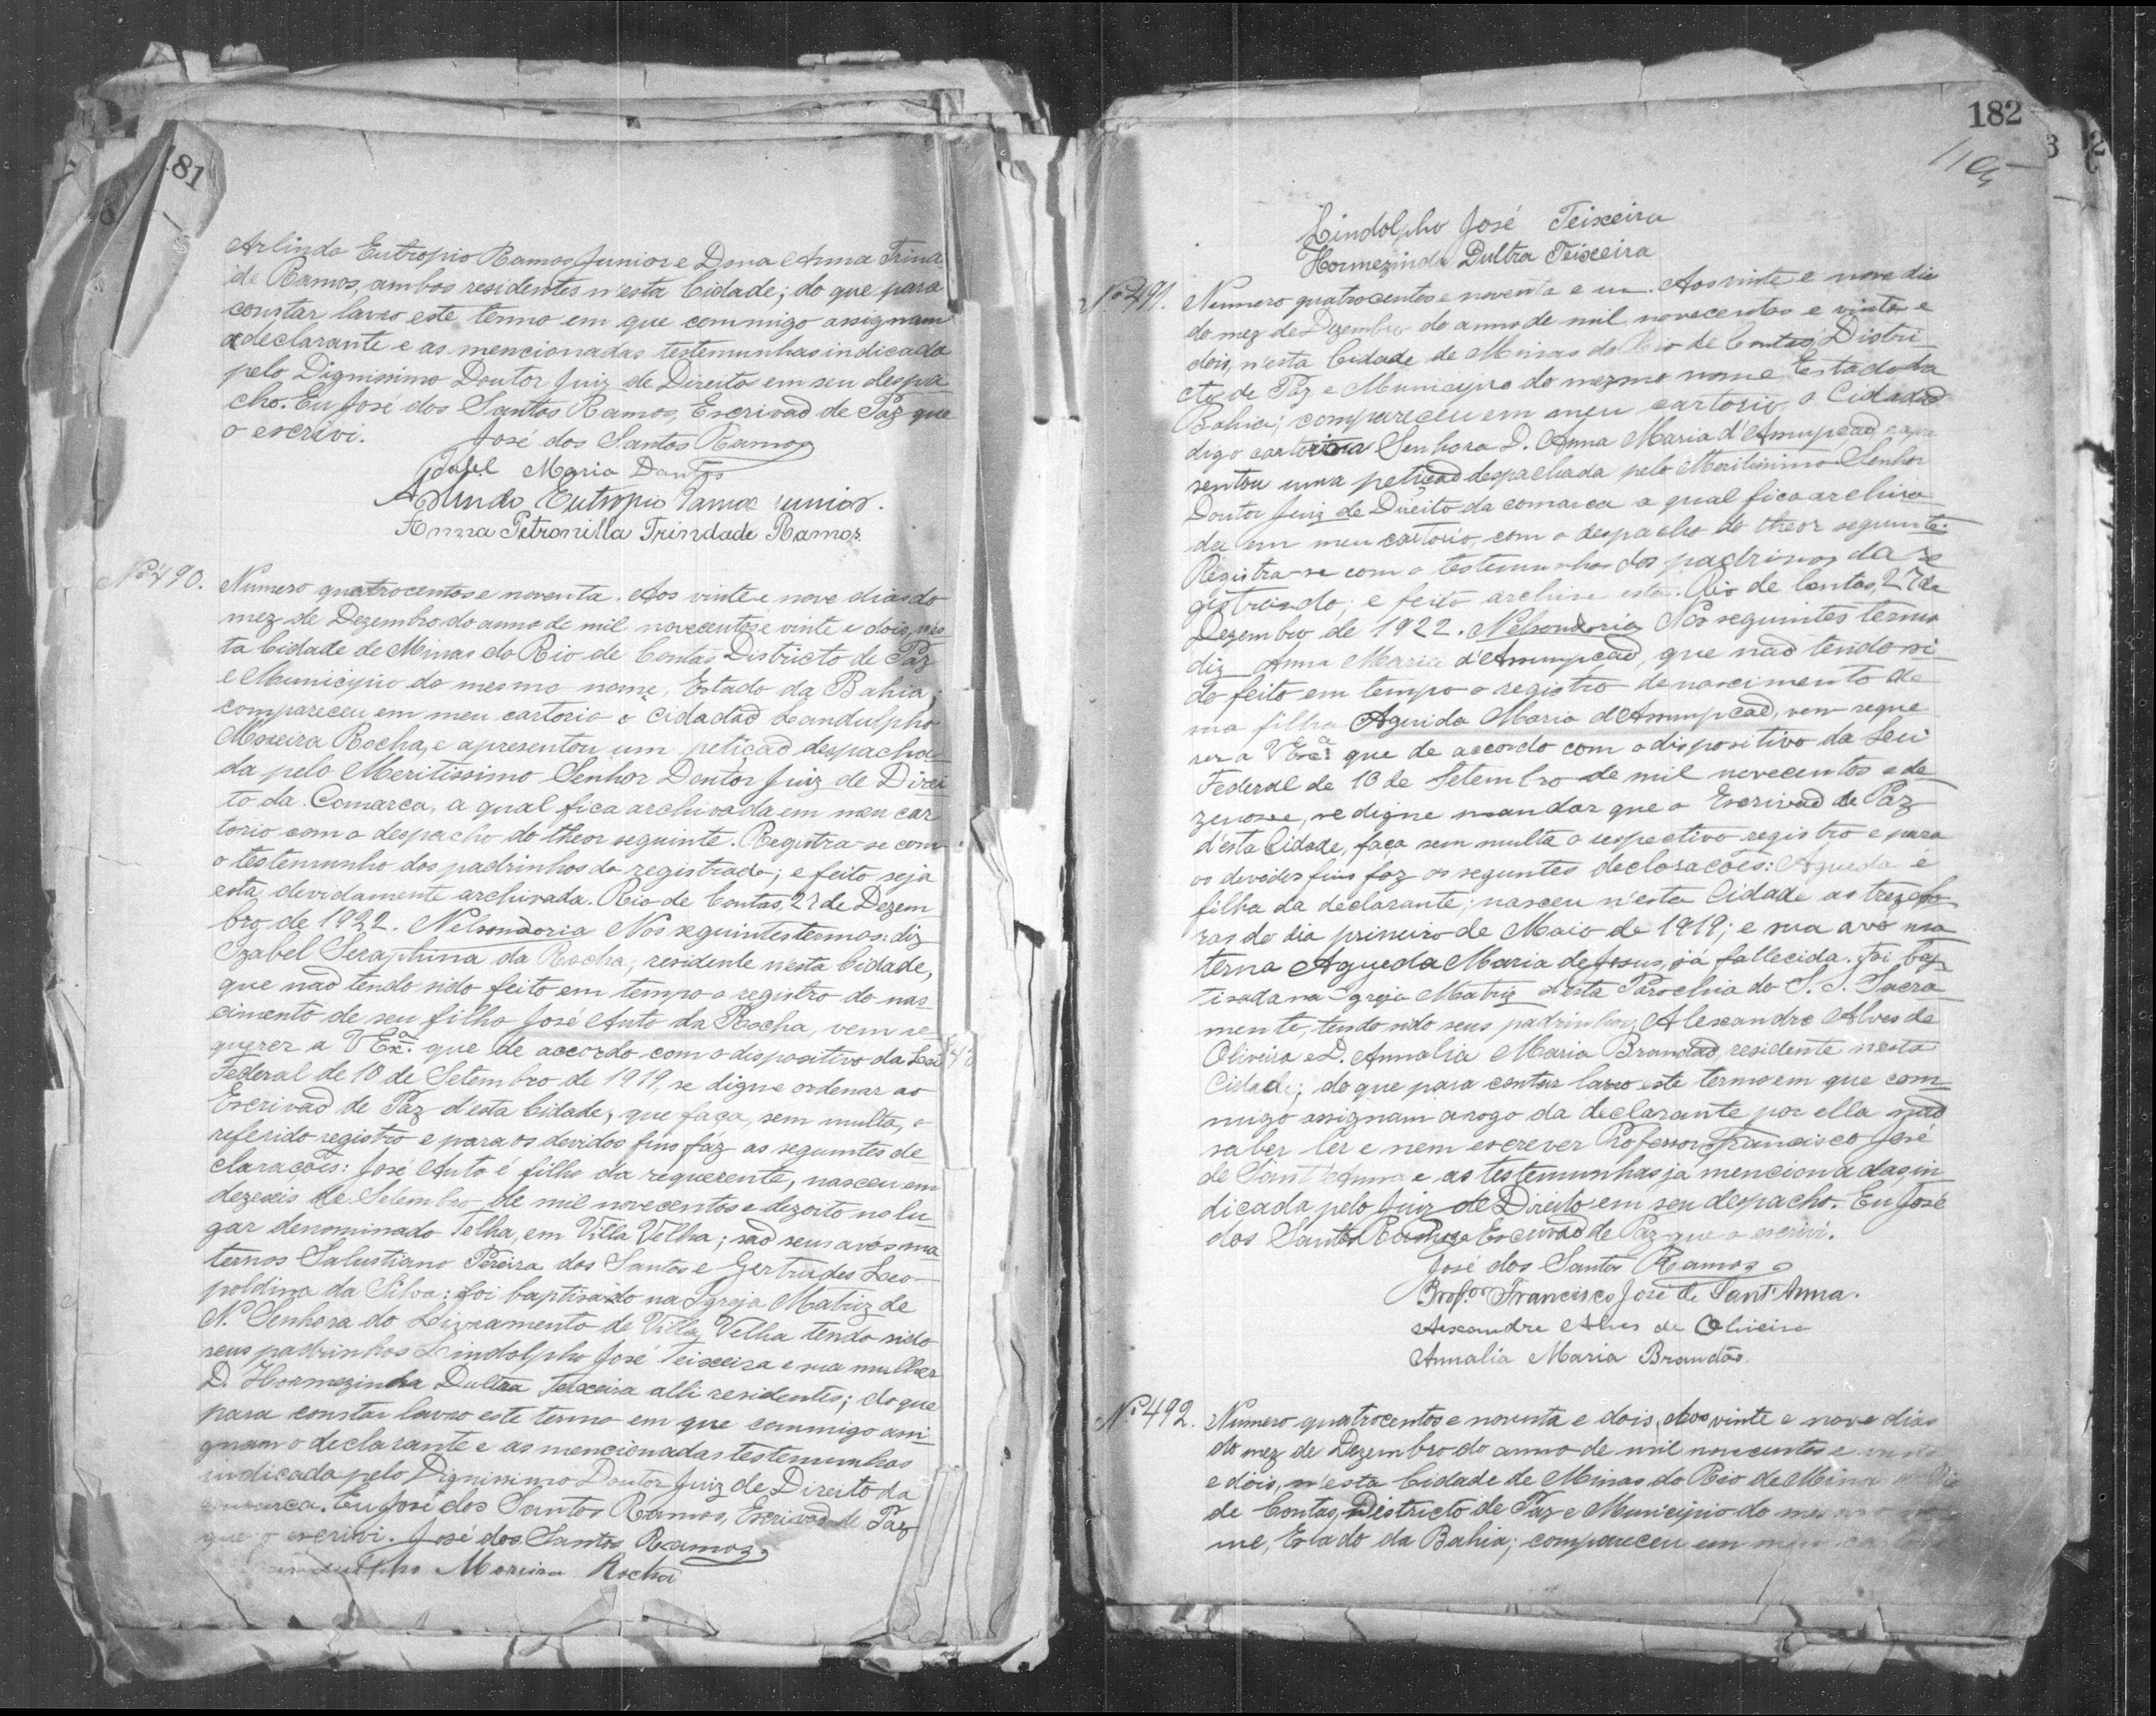 181
Arlindo Eutropio Ramos Junior e Dona Anna Trinda
de Ramos, ambos residentes n'esta Cidade; do que para
constar lavro este termo em que commigo assignam
a declarante e as mencionadas testemunhas indicada
pelo Dignissimo Doutor Juiz de Direito em seu despa
cho. Eu José dos Santos Ramos, Escrivaõ de Paz que
o escrivi.
José dos Santos Ramos
Maria Dantas
Arlindo Eutropio Ramos Junior.
Anna Petronilla Trindade Ramos
Nº 490. Numero quatrocentos e noventa. Aos vinte e nove dias do
mez de Dezembro do anno de mil novecentos e vinte e dois, n'es
ta Cidade de Minas do Rio de Contas, Districto de Paz
e Municipio do mesmo nome, Estado da Bahia;
compareceu em meu cartorio o Cidadaõ Landulpho
Moreira Rocha, e apresentou um petiçaõ despacha
da pelo Meritissimo Senhor Doutor Juiz de Direi
to da Comarca, a qual fica archivada em meu car
torio com o despacho do theor seguinte. Registra-se com
o testemunho dos padrinhos do registrado; e feito seja
esta devidamente archivada. Rio de Contas, 27 de Dezem
bro de 1922. Nelsondoria Nos seguintes termos: diz
Izabel Seraphina da Rocha, residente n'esta Cidade,
que naõ tendo sido feito em tempo o registro do nas
cimento de seu filho José Auto da Rocha, vem re
querer a V Exª. que de accordo com o dispositivo da Lei
Federal de 10 de Setembro de 1919, se digne ordenar ao
Escrivaõ de Paz d'esta Cidade, que faça, sem multa, o
referido registro e para os devidos fins fáz as seguintes de
claracões: José Auto é filho da requerente, nasceu em
dezeseis de Setembro de mil novecentos e dezoito no lu
gar denominado Telha, em Villa Velha; saõ seus avós ma
ternos Salustiano Pereira dos Santos e Gertrudes Leo
poldina da Silva; foi baptisado na Igreja Matriz de
N. Senhora do Livramento de Villa Velha tendo sido
seus padrinhos Lindolpho José Teixeira e sua mulher
D. Hormezinha Dultra Teixeira alli residentes; do que
para constar lavro este termo em que commigo assi
gnam o declarante e as mencionadas testemunhas
indicada pelo Dignissimo Doutor Juiz de Direito da
comarca. Eu José dos Santos Ramos, Escrivaõ de Paz
que o escrivi. José dos Santos Ramos
Landulpho Moreira Rocha
182
Lindolpho José Teixeira
Hormezinda Dultra Teixeira
Nº 491. Numero quatrocentos e noventa e um. Aos vinte e nove dia
do mez de Dezembro do anno de mil novecentos e vinte e
dois, n'esta Cidade de Minas do Rio de Contas, Distri
cto de Paz e Municipio do mesmo nome, Estado da
Bahia; compareceu em meu cartorio, o Cidadaõ
digo cartorio a Senhora D. Anna Maria d'Assumpçaõ, e apre
sentou uma petiçaõ despachada pelo Meritissimo Senhor
Doutor Juiz de Direito da comarca a qual fica archiva
da em meu cartorio, com o despacho do theor seguinte.
Registra-se com o testemunho dos padrinos da re
gistrando, e feito archive esta. Rio de Contas, 27 de
Dezembro de 1922. Nelsondoria Nos seguintes termo
diz Anna Maria d'Assumpcaõ, que naõ tendo si
do feito em tempo o registro de nascimento de
ma filha Agueda Maria d'Assumpcaõ, vem reque
rer a V Excª que de accordo com o dispositivo da Lei
Federal de 10 de Setembro de mil novecentos e de
zenove, se digne mandar que o Escrivaõ de Paz
d'esta Cidade, faça sem multa o respectivo registro e para
os devidos fins faz as seguntes declaracões: Agueda é
filha da declarante; nasceu n'esta Cidade as treze ho
ras do dia primeiro de Maio de 1919; e sua avó ma
terna Agueda Maria de Jesus, já fallecida. Foi bap
tisada na Igreja Matriz d'esta Parochia do S. S. Sacra
mento, tendo sido seus padrinhos, Alexandre Alves de
Oliveira e D. Annalia Maria Brandaõ, residente nesta
Cidade; do que para contar lavro este termo em que com
migo assignam a rogo da declarante por ella naõ
saber ler e nem escrever Professor Francisco José
de Sant'Anna e as testemunhas ja mencionadas, in
dicada pelo Juiz de Direito em seu despacho. Eu José
dos Santos Ramos Escrivaõ de Paz que o escrivi.
José dos Santos Ramos
Profºr Francisco José de Sant'Anna.
Alexandre Alves de Oliveira
Annalia Maria Brandão
Nº 492. Numero quatrocentos e noventa e dois, Aos vinte e nove dias
do mez de Dezembro do anno de mil novecentos e vinte
e dois, n'esta Cidade de Minas do Rio de Minas do Rio
de Contas, Districto de Paz e Municipio do mesmo no
me, Estado da Bahia; compareceu em meu cartorio